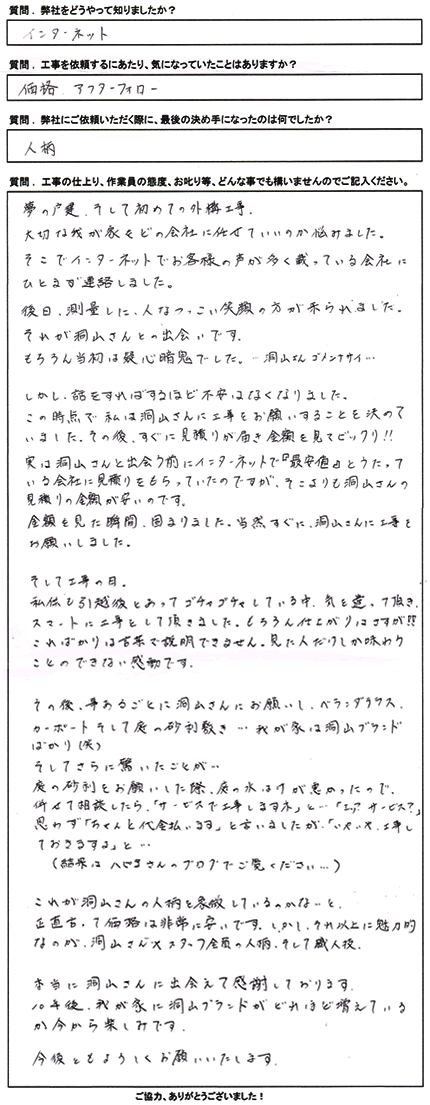 質問．弊社をどうやって知りましたか？
インターネット
質問．工事を依頼するにあたり、気になっていたことはありますか？
価格．アフターフォロー
質問．弊社にご依頼いただく際に、最後の決め手になったのは何でしたか？
人柄
質問．工事の仕上り、作業員の態度、お叱り等、どんな事でも構いませんのでご記入ください。
夢の戸建、そして初めての外構工事．
大切な我が家をどの会社に任せていいのか悩みました。
そこでインターネットでお客様の声が多く載っている会社に
ひとまず連絡しました。
後日、測量しに、人なつっこい笑顔の方が来られました。
それが洞山さんとの出会いです．
もちろん当初は疑心暗鬼でした。…洞山さん ゴメンナサイ…
しかし、話をすればするほど不安はなくなりました。
この時点で私は洞山さんに工事をお願いすることを決めて
いました。その後、すぐに見積りが届き金額を見てビックリ!!
実は洞山さんと出会う前にインターネットで『最安値』とうたってい
る会社に見積りをもらっていたのですが、そこよりも洞山さんの
見積りの金額が安いのです。
金額を見た瞬間、固まりました。当然すぐに、洞山さんに工事を
お願いしました。
そして工事の日。
私伝も引越後とあってゴチャゴチャしている中、気を遣って頂き、
スマートに工事をして頂きました。もちろん仕上がりはさすが!!
こればかりは言葉で説明できません。見た人だけしか味わう
ことのできない感動です．
その後、事あるごとに洞山さんにお願いし、ベランダテラス、
カーポート そして庭の砂利敷き…我が家は洞山ブランド
ばかり(笑)
そしてさらに驚いたことが…
庭の砂利をお願いした際、庭の水はけが悪かったので、
併せて相談したら、「サービスで工事しますネ」と…「エッ? サービス?」
思わず「ちゃんと代金払います」と言いましたが、「いやいや、工事し
ておきますよ」と…
（結果は さんのブログでご覧ください…）
これが洞山さんの人柄を象徴しているのかな と、
正直言って価格は非常に安いです．しかし、それ以上に魅力的
なのが、洞山さんやスタッフ全員の人柄、そして職人技．
本当に洞山さんに出会えて感謝しております．
10年後、我が家に洞山ブランドがどれほど増えている
か今から楽しみです．
今後ともよろしくお願いいたします．
ご協力、ありがとうございました！